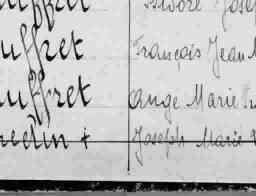 uffret Isidore Josep
uffret François Jean M
uffret Ange Marie
redin + Joseph Marie